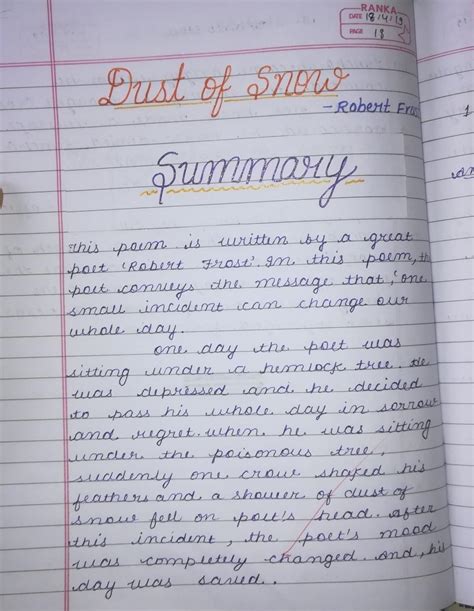 RANKA
DATE 18/4/19
PAGE 18
Dust of Snow
- Robert Frost
Summary
This poem is written by a great
poet 'Robert Frost'. In this poem, the
poet conveys the message that, 'one
small incident can change our
whole day.
One day the poet was
sitting under a hemlock tree. He
was depressed and he decided
to pass his whole day in sorrow
and regret. when he was sitting
under the poisonous tree,
suddenly one crow shaked his
feathers and a shower of dust of
snow fell on poet's head. After
this incident, the poet's mood
was completely changed. And, his
day was saved.